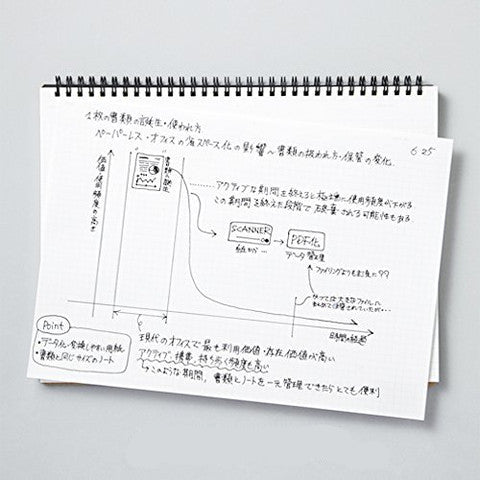 1枚の書類の誕生・使われ方
ペーパーレス・オフィスの省スペース化の影響〜書類の扱われ方・保管の変化
6 25
価値・使用頻度の高さ
書類の誕生
アクティブな期間を終えると極端に使用頻度が下がる
この期間を終えた段階で破棄される可能性もある
SCANNER
紙から…
PDF化
データ管理
かつては大きなファイルに
まとめて保管されていたが…
時間の経過
Point
・データ化・変換しやすい用紙
・書類と同じサイズのノート
現代のオフィスで最も利用価値・存在価値が高い
アクティブ 捜索 持ち歩く頻度も高い
このような期間、書類とノートを一元管理できたらとても便利